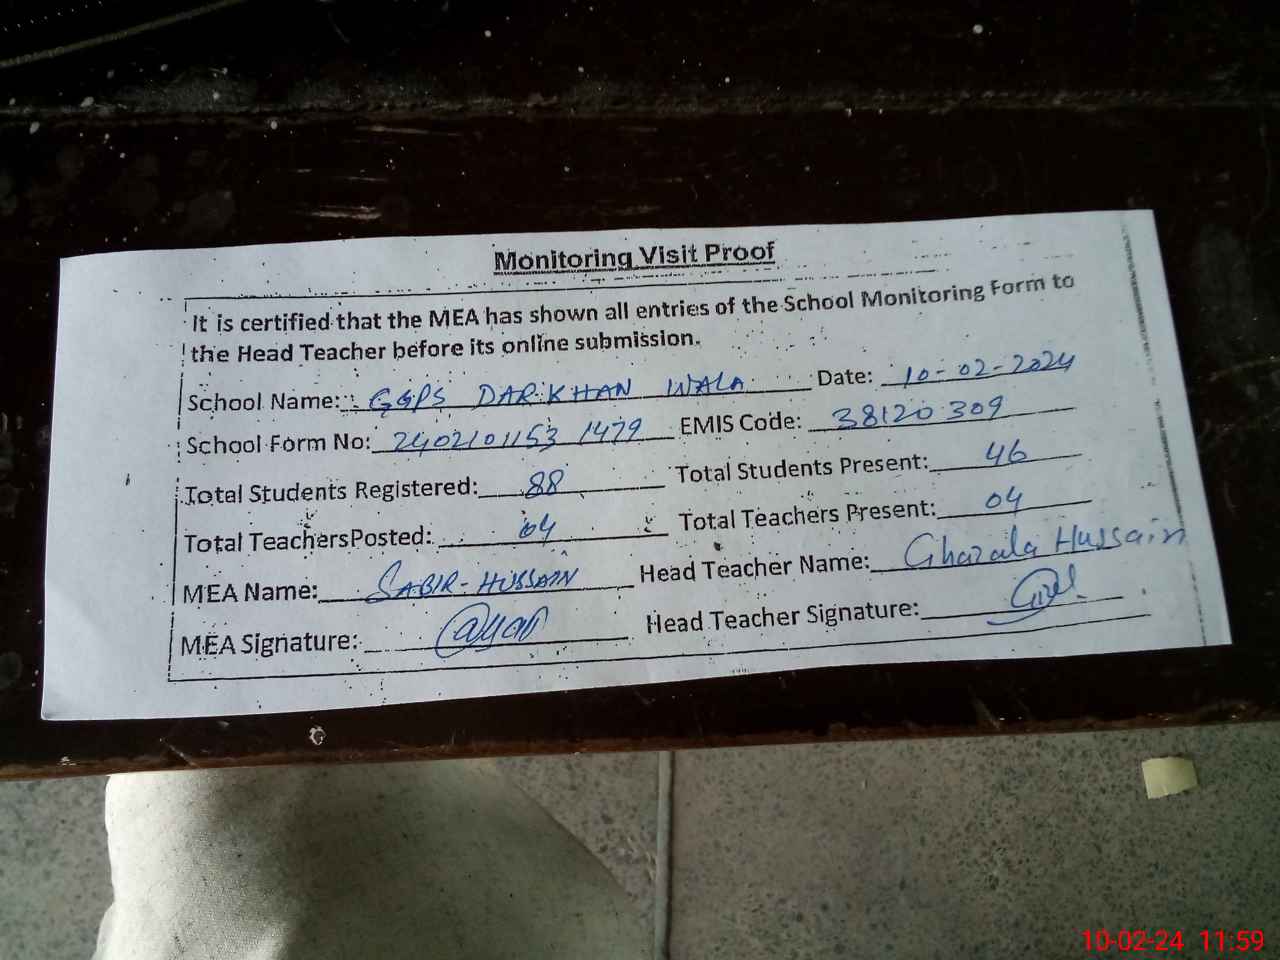 Monitoring Visit Proof
It is certified that the MEA has shown all entries of the School Monitoring Form to
the Head Teacher before its online submission.
School Name: GGPS DARIKHAN WALA Date: 10-02-2024
School Form No: 2402101153 1479 EMIS Code: 38120309
Total Students Registered: 88 Total Students Present: 46
Total TeachersPosted: 04 Total Teachers Present: 04
MEA Name: SABIR-HUSSAIN Head Teacher Name: Ghazala Hussain
MEA Signature: Head Teacher Signature:
10-02-24 11:59